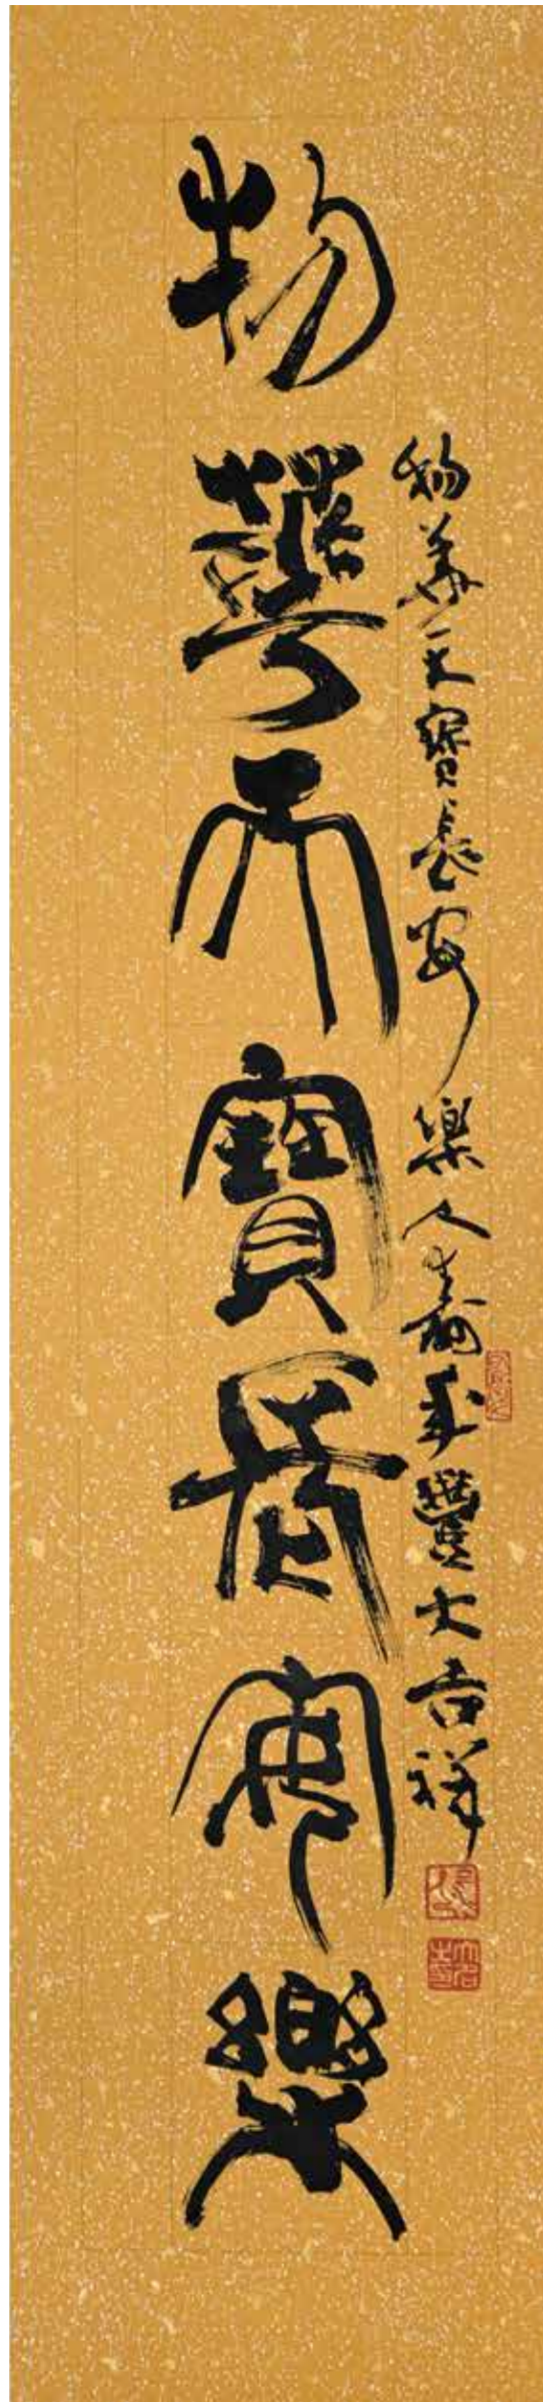 物華天寶長安樂
物華天寶長安樂人壽年豐大吉祥